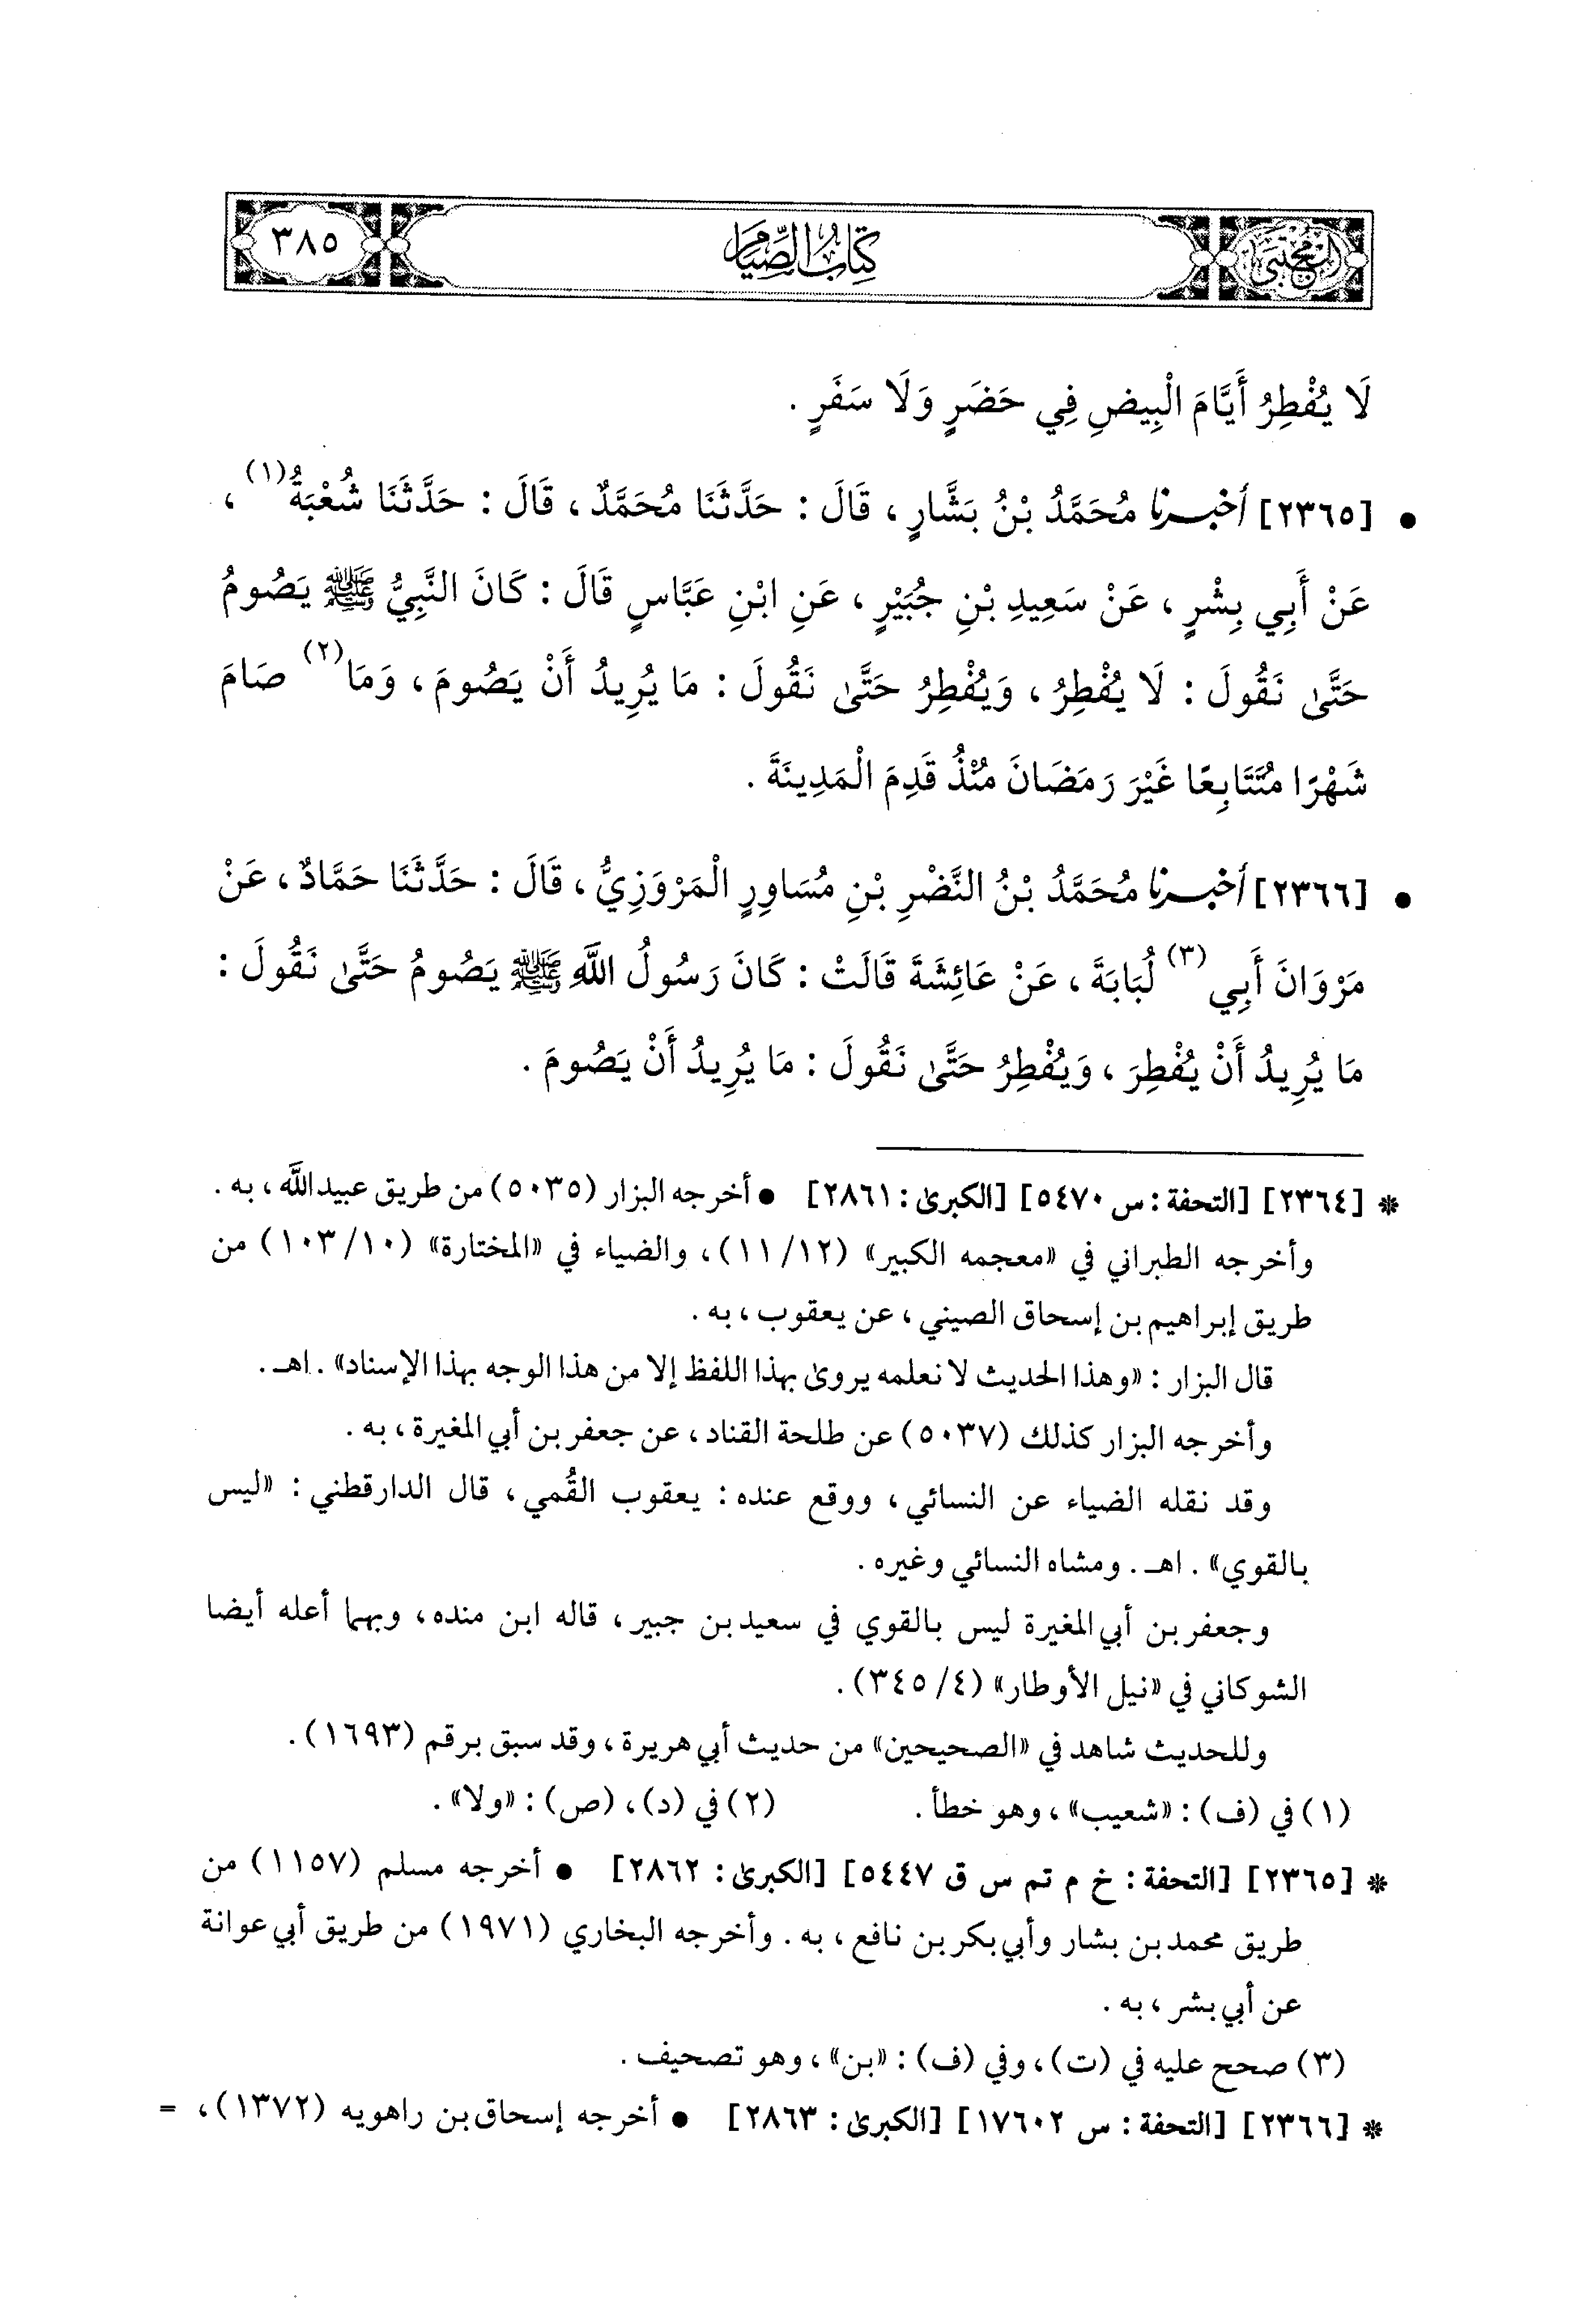 المجتبى
كتاب الصيام
٣٨٥
لَا يُفْطِرُ أَيَّامَ الْبِيضِ فِي حَضَرٍ وَلَا سَفَرٍ .
• [٢٣٦٥] أخبرنا مُحَمَّدُ بْنُ بَشَّارٍ ، قَالَ : حَدَّثَنَا مُحَمَّدٌ ، قَالَ : حَدَّثَنَا شُعْبَةُ(١) ،
عَنْ أَبِي بِشْرٍ ، عَنْ سَعِيدِ بْنِ جُبَيْرٍ ، عَنِ ابْنِ عَبَّاسٍ قَالَ : كَانَ النَّبِيُّ ﷺ يَصُومُ
حَتَّىٰ نَقُولَ : لَا يُفْطِرُ ، وَيُفْطِرُ حَتَّىٰ نَقُولَ : مَا يُرِيدُ أَنْ يَصُومَ ، وَمَا(٢) صَامَ
شَهْرًا مُتَتَابِعًا غَيْرَ رَمَضَانَ مُنْذُ قَدِمَ الْمَدِينَةَ .
• [٢٣٦٦] أخبرنا مُحَمَّدُ بْنُ النَّضْرِ بْنِ مُسَاوِرٍ الْمَرْوَزِيُّ ، قَالَ : حَدَّثَنَا حَمَّادٌ ، عَنْ
مَرْوَانَ أَبِي(٣) لُبَابَةَ ، عَنْ عَائِشَةَ قَالَتْ : كَانَ رَسُولُ اللَّهِ ﷺ يَصُومُ حَتَّىٰ نَقُولَ :
مَا يُرِيدُ أَنْ يُفْطِرَ ، وَيُفْطِرُ حَتَّىٰ نَقُولَ : مَا يُرِيدُ أَنْ يَصُومَ .
* [٢٣٦٤] [التحفة : س ٥٤٧٠] [الكبرىٰ : ٢٨٦١] • أخرجه البزار (٥٠٣٥) من طريق عبيد اللَّه ، به .
وأخرجه الطبراني في «معجمه الكبير» (١١/١٢) ، والضياء في «المختارة» (١٠٣/١٠) من
طريق إبراهيم بن إسحاق الصيني ، عن يعقوب ، به .
قال البزار : «وهذا الحديث لا نعلمه يروىٰ بهذا اللفظ إلا من هذا الوجه بهذا الإسناد» . اهـ .
وأخرجه البزار كذلك (٥٠٣٧) عن طلحة القناد ، عن جعفر بن أبي المغيرة ، به .
وقد نقله الضياء عن النسائي ، ووقع عنده : يعقوب القُمي ، قال الدارقطني : «ليس
بالقوي» . اهـ . ومشاه النسائي وغيره .
وجعفر بن أبي المغيرة ليس بالقوي في سعيد بن جبير ، قاله ابن منده ، وبهما أعله أيضا
الشوكاني في «نيل الأوطار» (٣٤٥/٤) .
وللحديث شاهد في «الصحيحين» من حديث أبي هريرة ، وقد سبق برقم (١٦٩٣) .
(١) في (ف) : «شعيب» ، وهو خطأ . (٢) في (د) ، (ص) : «ولا» .
* [٢٣٦٥] [التحفة : خ م تم س ق ٥٤٤٧] [الكبرىٰ : ٢٨٦٢] • أخرجه مسلم (١١٥٧) من
طريق محمد بن بشار وأبي بكر بن نافع ، به . وأخرجه البخاري (١٩٧١) من طريق أبي عوانة
عن أبي بشر ، به .
(٣) صحح عليه في (ت) ، وفي (ف) : «بن» ، وهو تصحيف .
* [٢٣٦٦] [التحفة : س ١٧٦٠٢] [الكبرىٰ : ٢٨٦٣] • أخرجه إسحاق بن راهويه (١٣٧٢) ، =